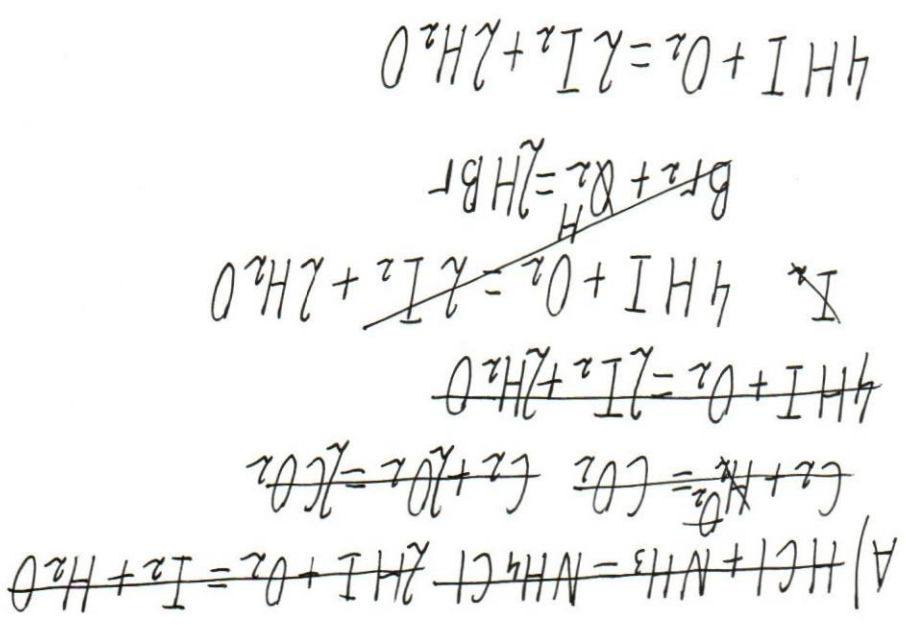 A) HCl + NH₃ = NH₄Cl 2HI + O₂ = I₂ + H₂O
C₂ + O₂ = CO₂ C₂ + 2O₂ = 2CO₂
4HI + O₂ = 2I₂ + 2H₂O
I₂ 4HI + O₂ = 2I₂ + 2H₂O
Br₂ + H₂ = 2HBr
4HI + O₂ = 2I₂ + 2H₂O